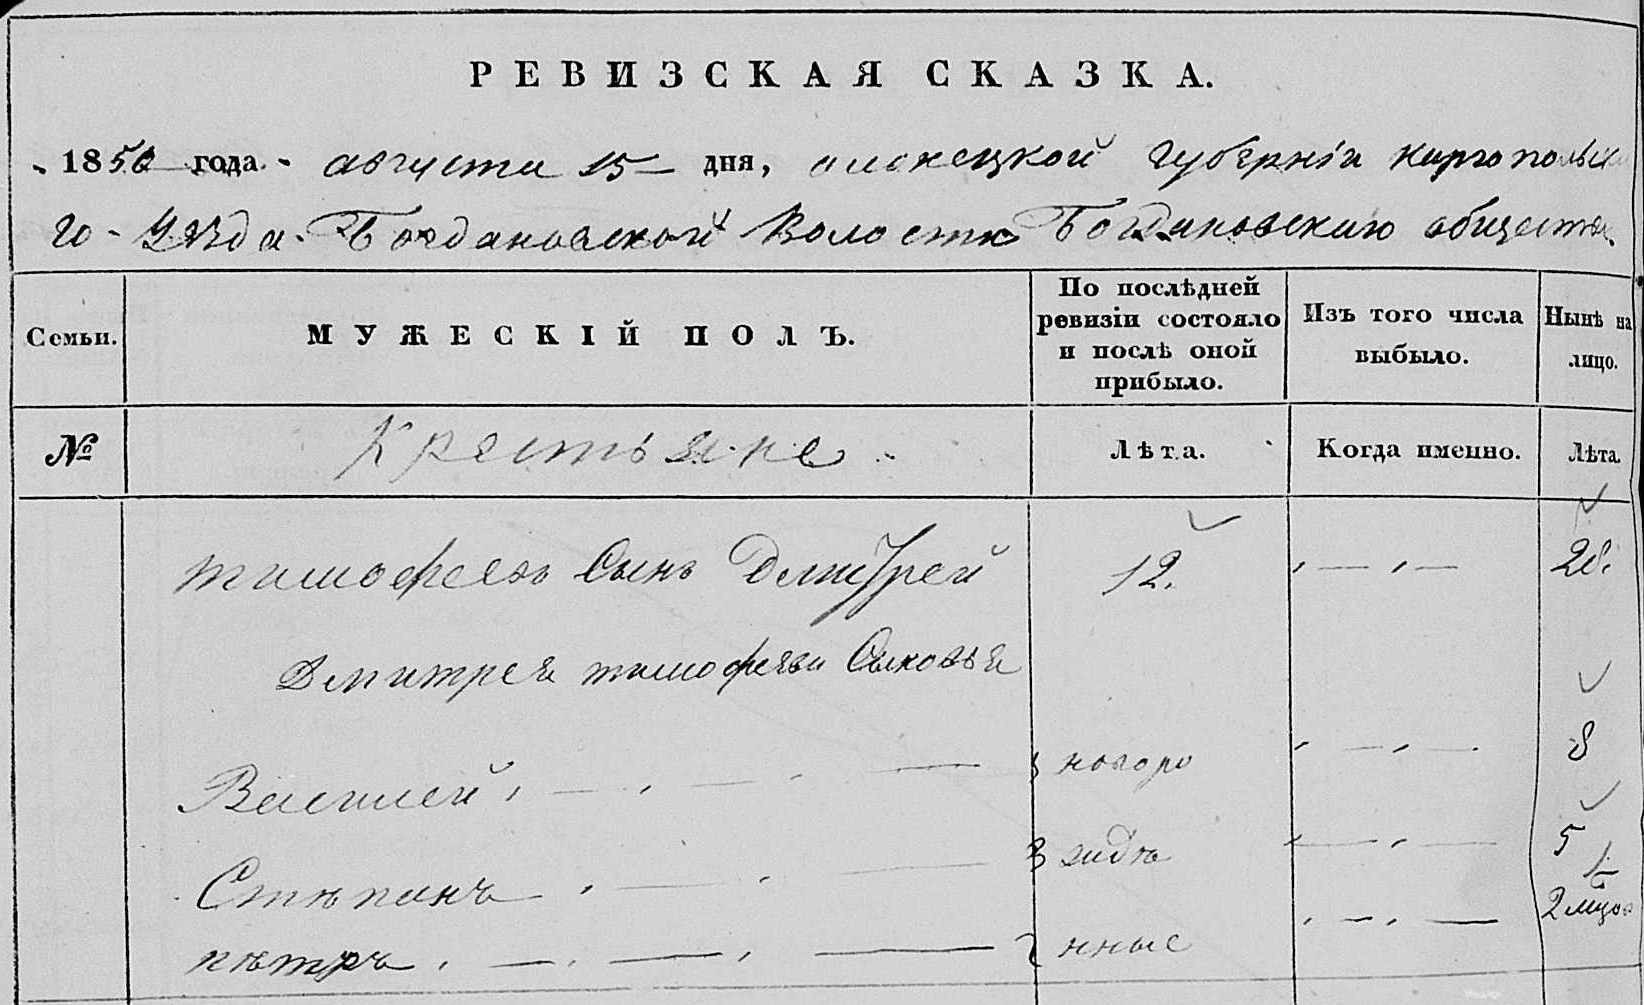 РЕВИЗСКАЯ СКАЗКА.
1850 года августа 15 дня, олонецкой Губерніи каргопольска
го уѣзда Богдановской Волости Богдановскаго общества
Семьи.
МУЖЕСКІЙ ПОЛЪ.
По послѣдней
ревизіи состояло
и послѣ оной
прибыло.
Изъ того числа
выбыло.
Нынѣ на
лицо.
№
Крестьяне
Лѣта.
Когда именно.
Лѣта.
тимофеевъ Сынъ Дмитрей 12. 28.
Дмитрея тимофеева Сыновья
Василей новоро 8
Стѣпанъ жидѣ 5
пѣтръ нные 2 мцов